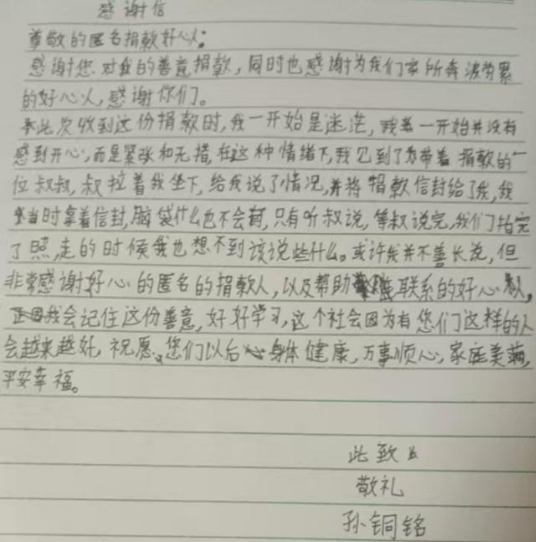 感谢信
尊敬的匿名捐款好心人:
感谢您对我的善意捐款,同时也感谢为我们家所奔波劳累
的好心人,感谢你们。
此次收到这份捐款时,我一开始是迷茫,我一开始并没有
感到开心,而是紧张和无措,在这种情绪下,我见到了带着捐款的一
位叔叔,叔拉着我坐下,给我说了情况,并将捐款信封给了我,我
当时拿着信封,脑袋什么也不会想,只有听叔说,等叔说完,我们拍完
了照,走的时候我也想不到该说些什么。或许我并不善长说,但
非常感谢好心的匿名的捐款人,以及帮助联系的好心人,
我会记住这份善意,好好学习,这个社会因为有您们这样的人
会越来越好,祝愿,您们以后身体健康,万事顺心,家庭美满,
平安幸福。
此致
敬礼
孙铜铭